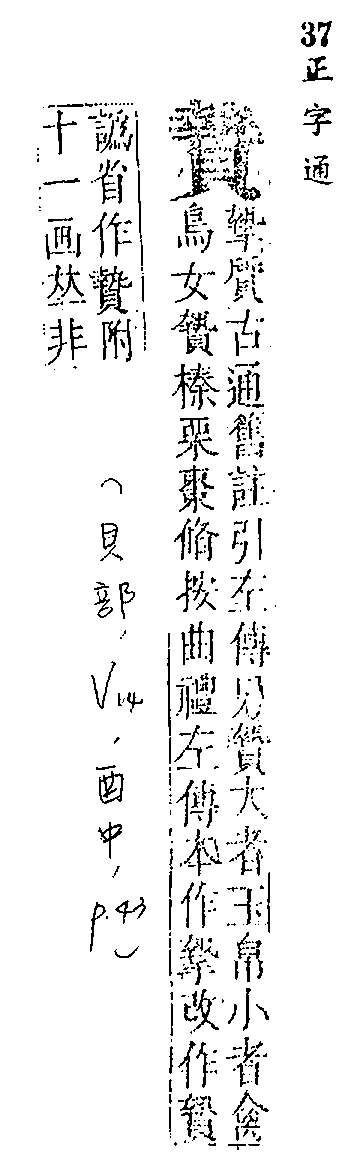 37 正字通
贄
摯質古通舊註引左傳男贄大者玉帛小者禽
鳥女贄榛栗棗脩按曲禮左傳本作摯改作贄
譌省作贄附
十一画𠀤非
(貝部, V14, 酉中, p.43)